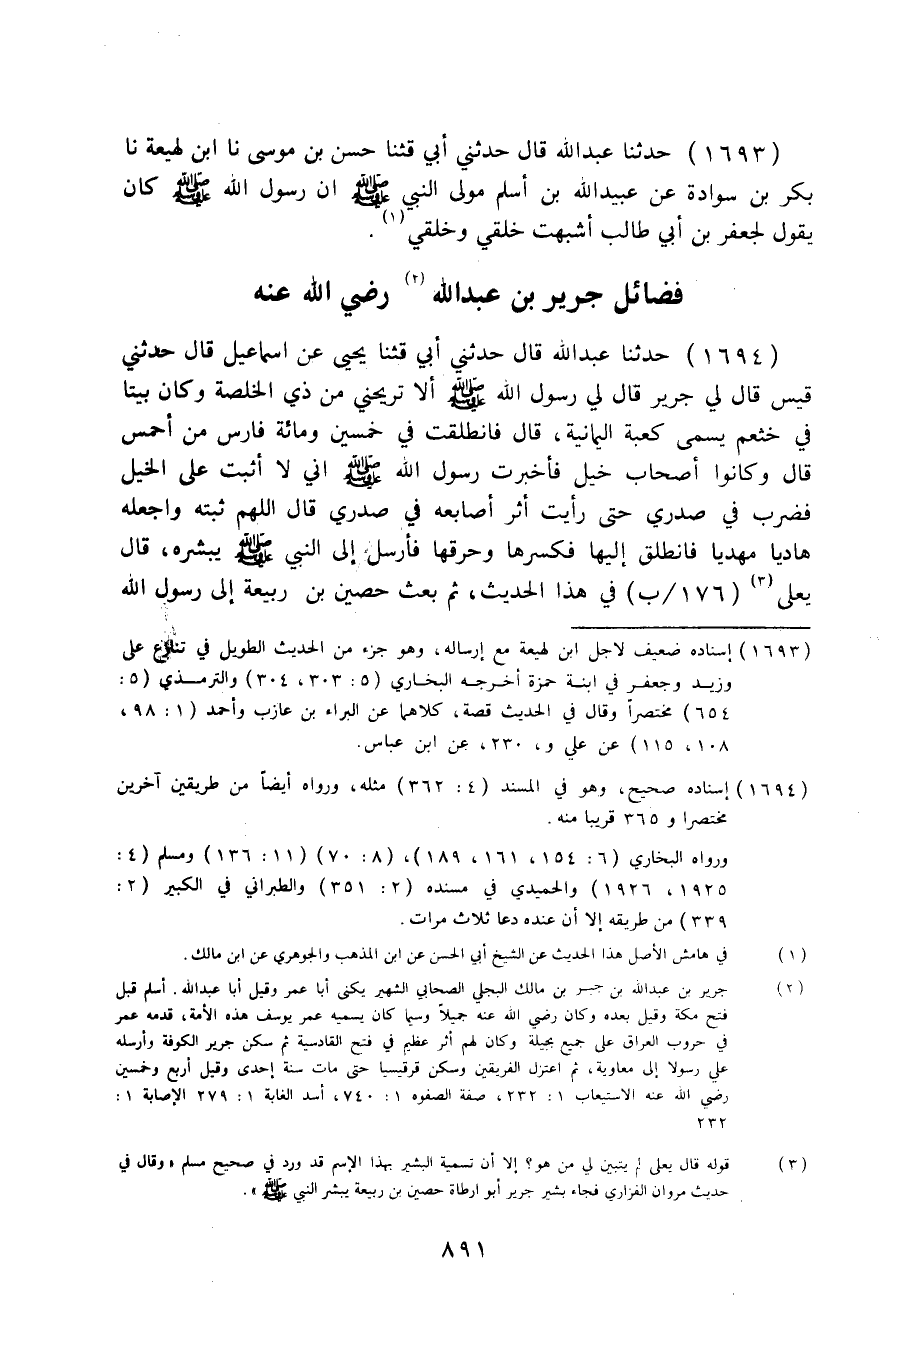 (١٦٩٣) حدثنا عبدالله قال حدثني أبي قثنا حسن بن موسى نا ابن لهيعة نا
بكر بن سوادة عن عبيدالله بن أسلم مولى النبي ﷺ ان رسول الله ﷺ كان
يقول لجعفر بن أبي طالب أشبهت خلقي وخلقي (١) .
فضائل جرير بن عبدالله (٢) رضي الله عنه
(١٦٩٤) حدثنا عبدالله قال حدثني أبي قثنا يحيى عن اسماعيل قال حدثني
قيس قال لي جرير قال لي رسول الله ﷺ ألا تريحني من ذي الخلصة وكان بيتا
في خثعم يسمى كعبة اليمانية، قال فانطلقت في خمسين ومائة فارس من أحمس
قال وكانوا أصحاب خيل فأخبرت رسول الله ﷺ اني لا أثبت على الخيل
فضرب في صدري حتى رأيت أثر أصابعه في صدري قال اللهم ثبته واجعله
هاديا مهديا فانطلق إليها فكسرها وحرقها فأرسل إلى النبي ﷺ يبشره، قال
يعلى (٣) (١٧٦/ب) في هذا الحديث، ثم بعث حصين بن ربيعة إلى رسول الله
(١٦٩٣) إسناده ضعيف لاجل ابن لهيعة مع إرساله، وهو جزء من الحديث الطويل في تنازع على
وزيد وجعفر في ابنة حمزة أخرجه البخاري (٥: ٣٠٣، ٣٠٤) والترمذي (٥:
٦٥٤) مختصراً وقال في الحديث قصة، كلاهما عن البراء بن عازب وأحمد (١: ٩٨،
١٠٨، ١١٥) عن علي و، ٢٣٠، عن ابن عباس.
(١٦٩٤) إسناده صحيح، وهو في المسند (٤: ٣٦٢) مثله، ورواه أيضاً من طريقين آخرين
مختصرا و ٣٦٥ قريبا منه .
ورواه البخاري (٦: ١٥٤، ١٦١، ١٨٩)، (٨: ٧٠) (١١: ١٣٦) ومسلم (٤:
١٩٢٥، ١٩٢٦) والحميدي في مسنده (٢: ٣٥١) والطبراني في الكبير (٢:
٣٣٩) من طريقه إلا أن عنده دعا ثلاث مرات .
(١) في هامش الأصل هذا الحديث عن الشيخ أبي الحسن عن ابن المذهب والجوهري عن ابن مالك .
(٢) جرير بن عبدالله بن بن مالك البجلي الصحابي الشهير يكنى أبا عمر وقيل أبا عبدالله . أسلم قبل
فتح مكة وقيل بعده وكان رضي الله عنه جميلاً وسيما كان يسميه عمر يوسف هذه الأمة، قدمه عمر
في حروب العراق على جميع بجيلة وكان لهم أثر عظيم في فتح القادسية ثم سكن جرير الكوفة وأرسله
علي رسولا إلى معاوية، ثم اعتزل الفريقين وسكن قرقيسيا حتى مات سنة إحدى وقيل أربع وخمسين
رضي الله عنه الاستيعاب ١: ٢٣٢، صفة الصفوه ١: ٧٤٠، أسد الغابة ١: ٢٧٩ الإصابة ١:
٢٣٢
(٣) قوله قال يعلى لم يتبين لي من هو؟ إلا أن تسمية البشير بهذا الإسم قد ورد في صحيح مسلم « وقال في
حديث مروان الفزاري فجاء بشير جرير أبو ارطاة حصين بن ربيعة يبشر النبي ﷺ » .
٨٩١